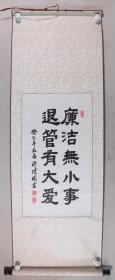 廉洁無小事
退管有大爱
癸巳年五春